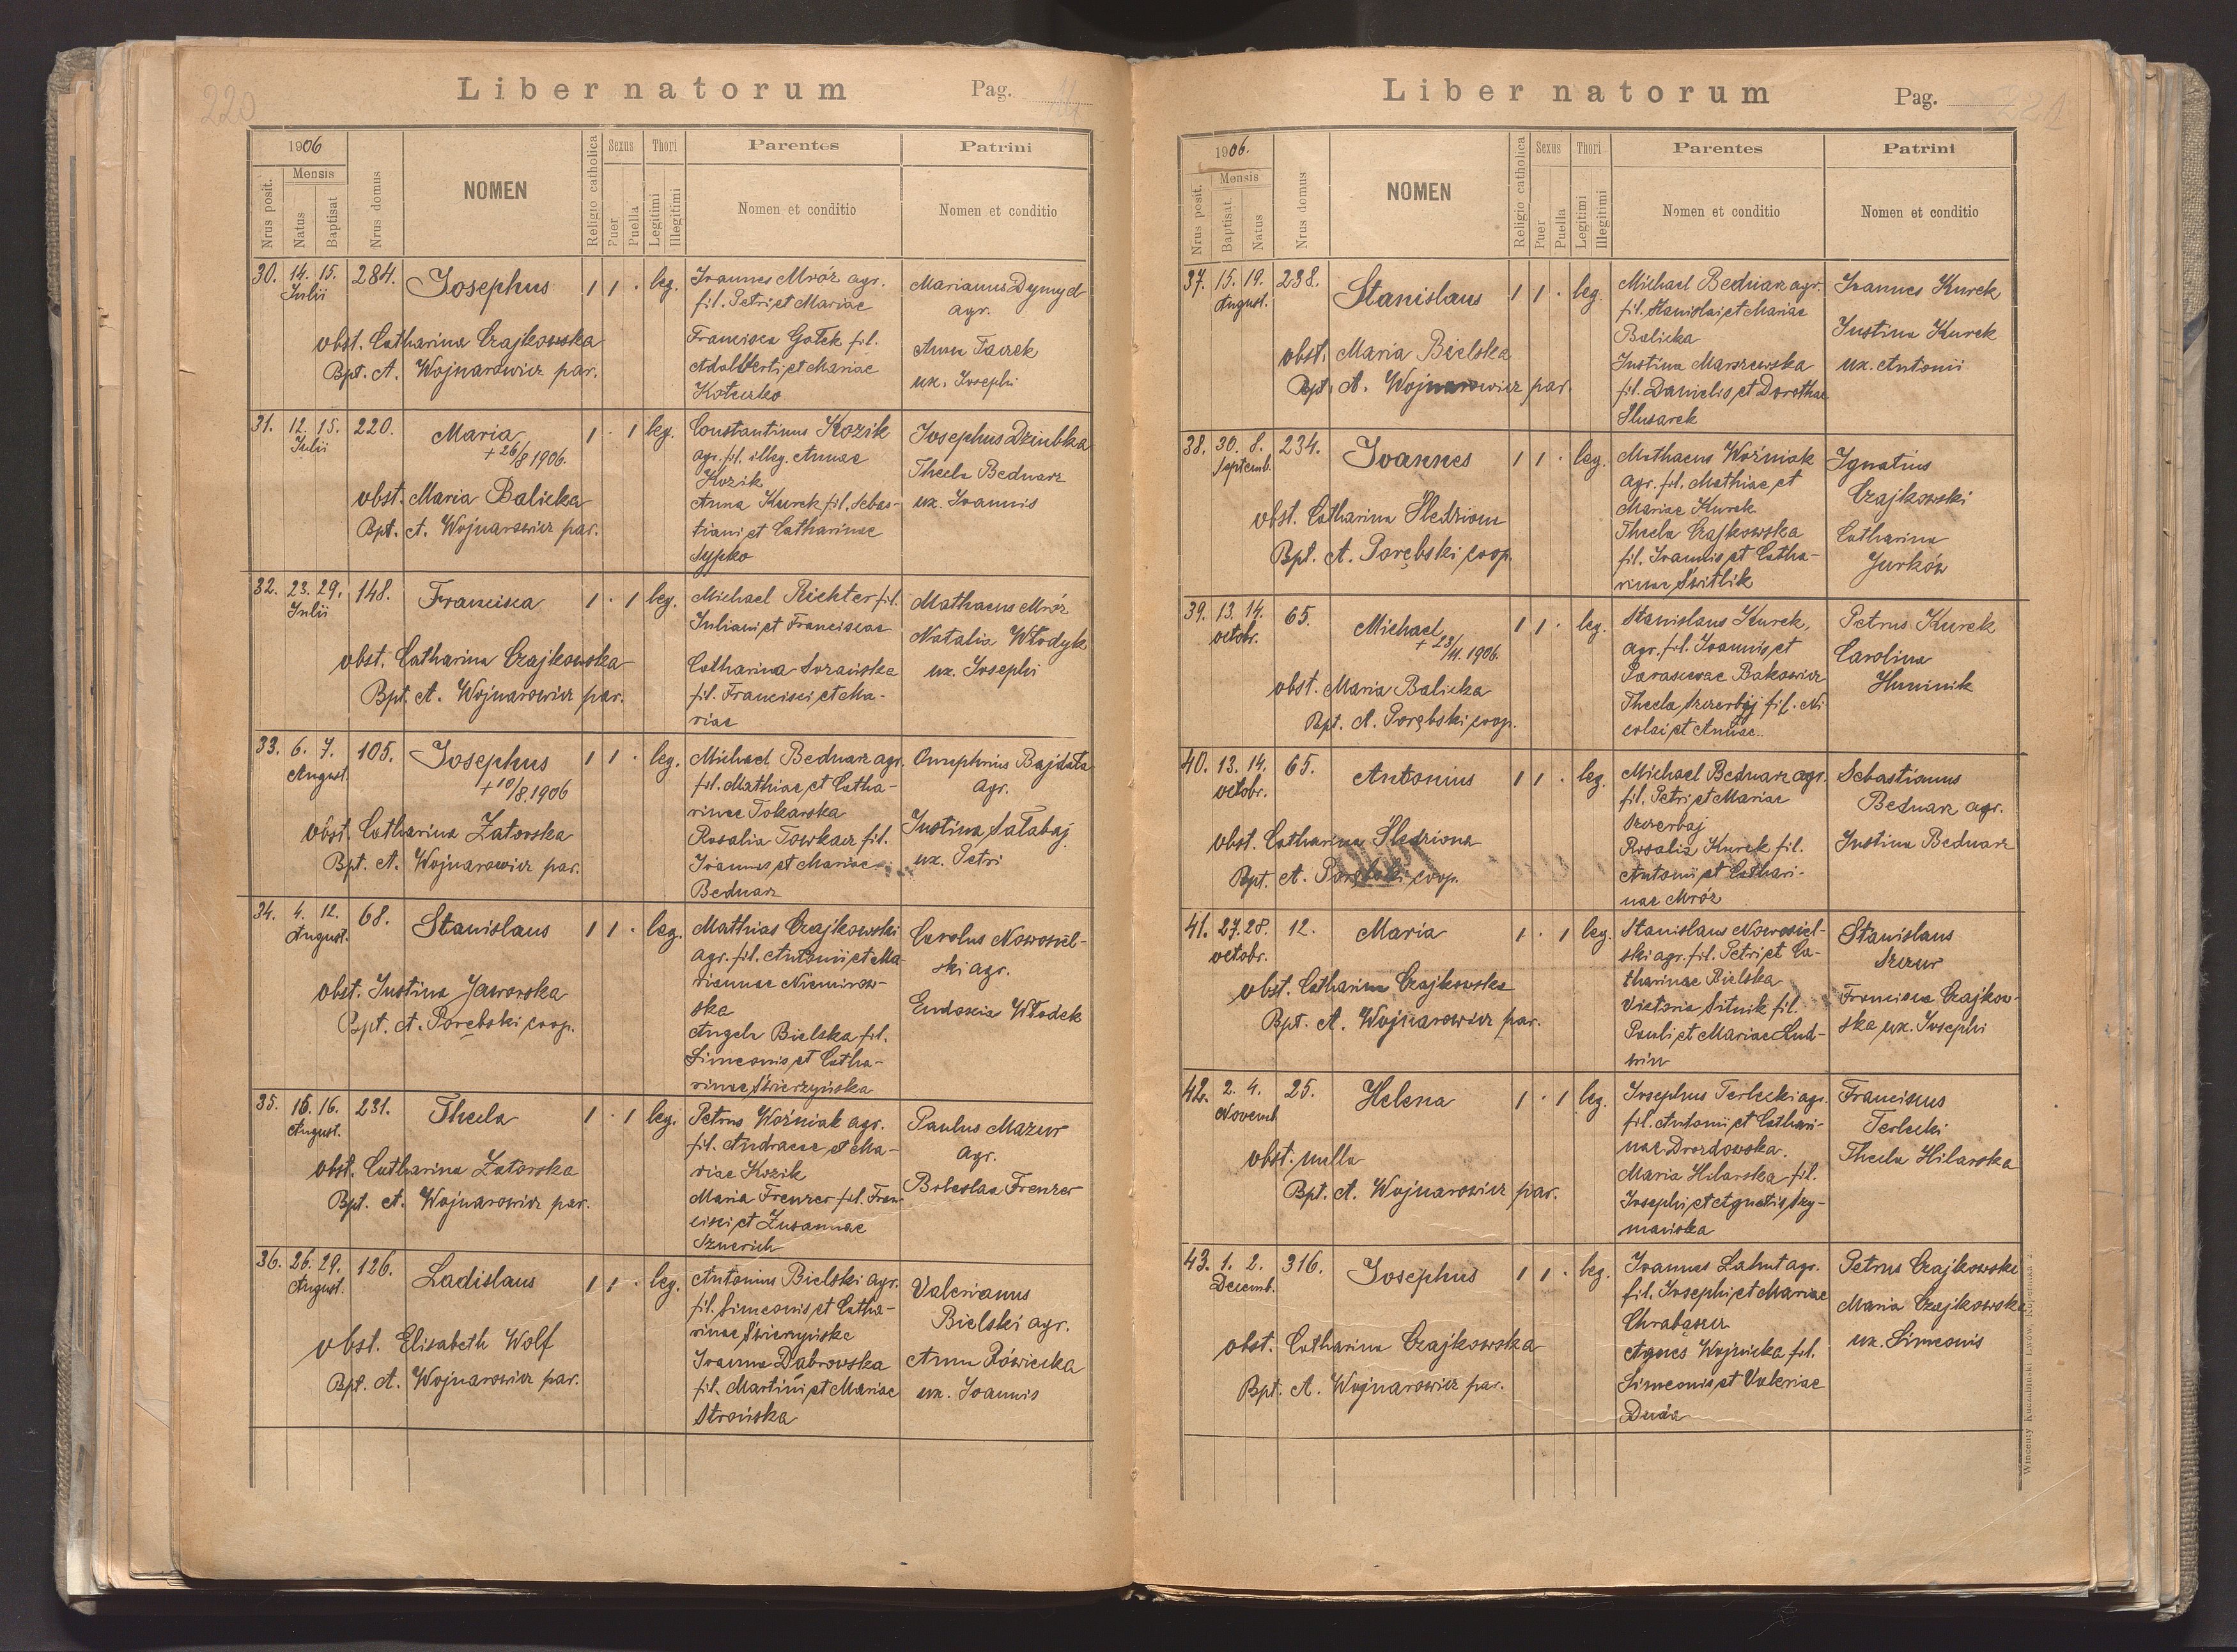 220
Liber natorum
Pag.
1906
Mensis
Nrus posit.
Natus
Baptisat
Nrus domus
NOMEN
Religio catholica
Sexus
Puer
Puella
Thori
Legitimi
Illegitimi
Parentes
Nomen et conditio
Patrini
Nomen et conditio
30. 14. 15. 284. Josephus 1 1 · leg.
Julii
obst. Catharina Czajkowska
Bpt. A. Wojnarowicz par.
Joannes Mróz agr.
fil. Petri et Mariae
Francisca Gołek fil.
Adalberti et Mariae
Marianus Dymyd
agr.
Anna
ux. Josephi
31. 12. 15. 220. Maria 1 · 1 leg.
Julii
+ 26/8 1906.
obst. Maria Balicka
Bpt. A. Wojnarowicz par.
Constantinus Kozik
agr. fil. illeg. Annae
Kozik
Anna Kurek fil. Sebas-
tiani et Catharinae
Sypko
Josephus Dziubka
Thecla Bednarz
ux. Joannis
32. 23. 29. 148. Francisca 1 · 1 leg.
Julii
obst. Catharina Czajkowska
Bpt. A. Wojnarowicz par.
Michael Richter fil.
Juliani et Franciscae
Catharina
fil. Francisci et Ma-
riae
Mathaeus Mróz
Natalia Włodyk
ux. Josephi
33. 6. 7. 105. Josephus 1 1 · leg.
August.
+ 10/8 1906
obst. Catharina Zatorska
Bpt. A. Wojnarowicz par.
Michael Bednarz agr.
fil. Mathiae et Catha-
rinae Tokarska
Rosalia Towkacz fil.
Joannes et Mariae
Bednarz
Onuphrius Bajdała
agr.
Justina Sałabaj
ux. Petri
34. 4. 12. 68. Stanislaus 1 1 · leg.
August.
obst. Justina Jaworska
Bpt. A. Porębski coop.
Mathias Czajkowski
agr. fil. Antonii et Ma
riannae Niemirow-
ska
Angela Bielska fil.
Simeonis et Catha-
rinae Świerzyńska
Carolus Nowosiel-
ski agr.
Eudoxia Włodek
35. 15. 16. 231. Thecla 1 · 1 leg.
August.
obst. Catharina Zatorska
Bpt. A. Wojnarowicz par.
Petrus Woźniak agr.
fil. Andreae et Ma-
riae Kozik
Maria Frenzer fil. Fran-
cisci et Zusannae
Paulus Mazur
agr.
Boleslaa Frenzer
36. 26. 29. 126. Ladislaus 1 1 · leg.
August.
obst. Elisabeth Wolf
Bpt. A. Wojnarowicz par.
Antonius Bielski agr.
fil. Simeonis et Catha-
rinae Świerzyńska
Joanna Dąbrowska
fil. Martini et Mariae
Strońska
Valerianus
Bielski agr.
Anna Rówicka
ux. Joannis
Liber natorum
Pag. 221
1906.
Mensis
Nrus posit.
Baptisat.
Natus
Nrus domus
NOMEN
Religio catholica
Sexus
Puer
Puella
Thori
Legitimi
Illegitimi
Parentes
Nomen et conditio
Patrini
Nomen et conditio
37. 15. 19. 238. Stanislaus 1 1 · leg.
August.
obst. Maria Bielska
Bpt. A. Wojnarowicz par.
Michael Bednarz agr.
fil. Stanislai et Mariae
Balicka
Justina Marszewska
fil. Danielis et Dorothae
Slusarek
Joannes Kurek
Justina Kurek
ux. Antonii
38. 30. 8. 234. Joannes 1 1 · leg.
Septemb.
obst. Catharina Śledziona
Bpt. A. Porębski coop.
Mathaeus Woźniak
agr. fil. Mathiae et
Mariae Kurek
Thecla Czajkowska
fil. Joannis et Catha-
rinae Świtlik
Ignatius
Czajkowski
Catharina
Jurków
39. 13. 14. 65. Michael 1 1 · leg.
octobr.
+ 23/11. 1906.
obst. Maria Balicka
Bpt. A. Porębski coop.
Stanislaus Kurek,
agr. fil. Joannis et
Parascevae Bakowicz
Thecla Szczerbaj fil. Ni
colai et Annae.
Petrus Kurek
Carolina
Huminik
40. 13. 14. 65. Antonius 1 1 · leg.
octobr.
obst. Catharina Śledziona
Bpt. A. Porębski coop.
Michael Bednarz agr.
fil. Petri et Mariae
Szczerbaj
Rosalia Kurek fil.
Antonii et Cathari-
nae Mróz
Sebastianus
Bednarz agr.
Justina Bednarz
41. 27. 28. 12. Maria 1 · 1 leg.
octobr.
obst. Catharina Czajkowska
Bpt. A. Wojnarowicz par.
Stanislaus Nowosiel-
ski agr. fil. Petri et Ca-
tharinae Bielska
Victoria Sitnik fil.
Pauli et Mariae Lud-
win
Stanislaus
Szczur
Francisca Czajkow-
ska ux. Josephi
42. 2. 4. 25. Helena 1 · 1 leg.
Novemb
obst. nulla
Bpt. A. Wojnarowicz par.
Josephus Terlecki agr.
fil. Antonii et Cathari-
nae Drozdowska.
Maria Hilarska fil.
Josephi et Agnetis Szy-
mańska
Franciscus
Terlecki
Thecla Hilarska
43. 1. 2. 316. Josephus 1 1 · leg.
Decemb.
obst. Catharina Czajkowska
Bpt. A. Wojnarowicz par.
Joannes Lahut agr.
fil. Josephi et Mariae
Chrabąszcz
Agnes Wojnicka fil.
Simeonis et Valeriae
Duda
Petrus Czajkowski
Maria Czajkowska
ux. Simeonis
Wincenty Kuczabiński Lwów, Kopernika